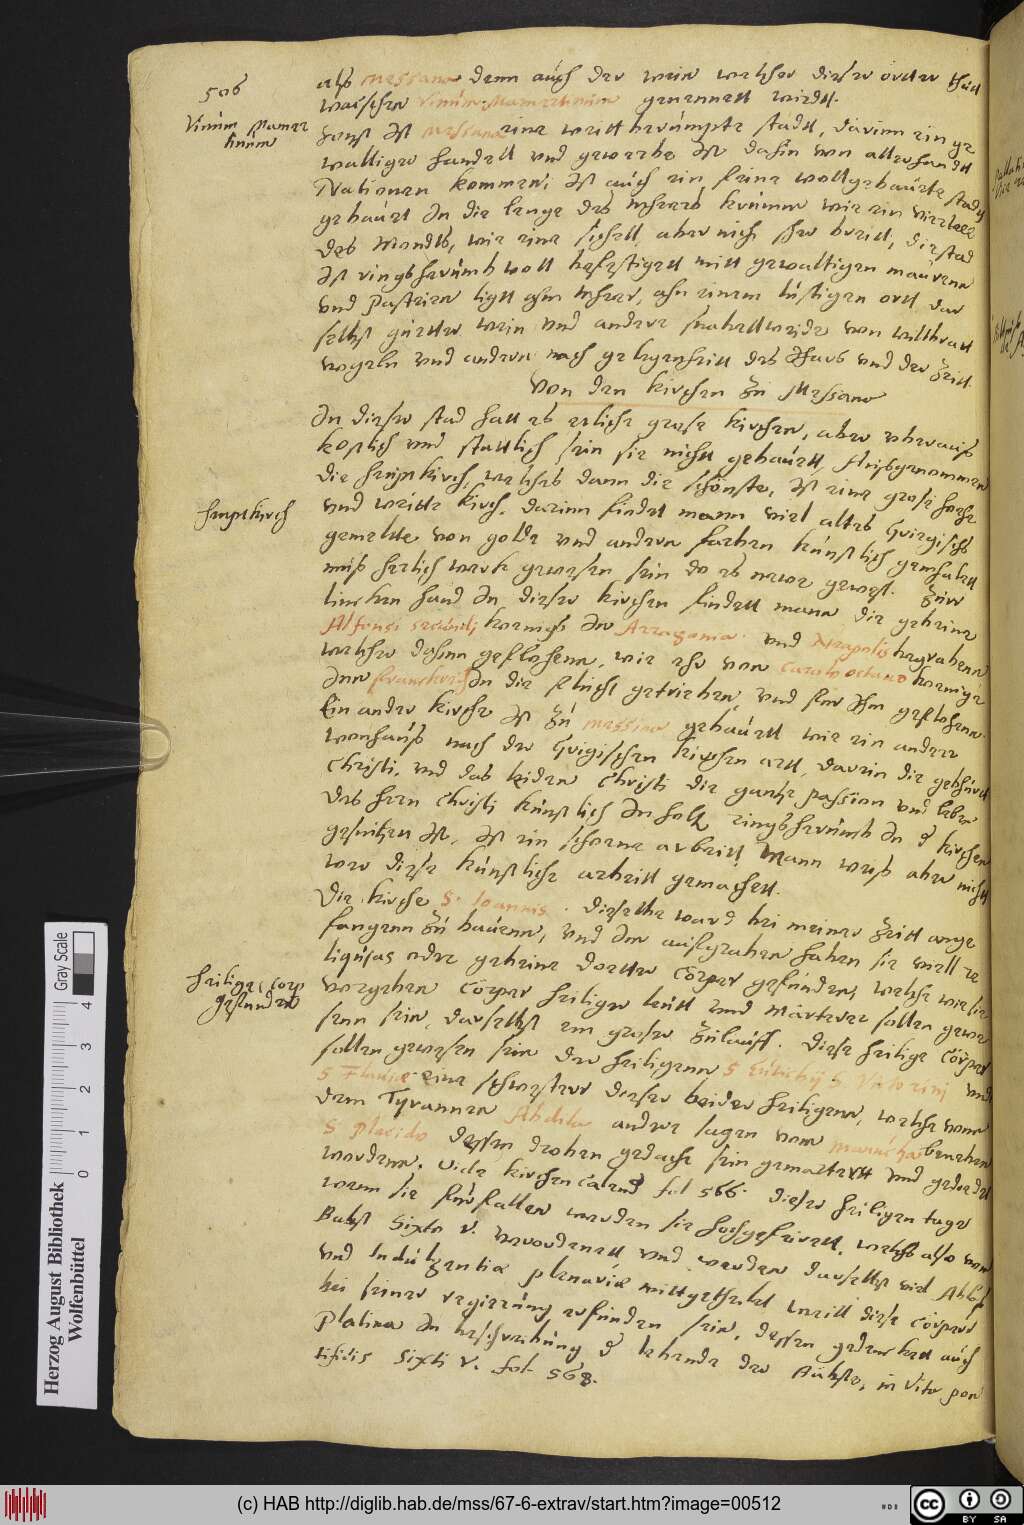 506
alß Messana dann auch der wein welcher dieser örtter
welschen Vinum Mamertinum genennett wirdt.
Vinum Mamer
tinum
sonst ist Messana eine weittberümpte stadt, darinn ein ge
waltiger handell und gewerbe ist dahin von allerhandt
Nationen kommen, ist auch ein feine wollgebaüete stadt
gebaüet in die lenge des mheers krümme wie ein viertell
des Mondts, wie eine sichell, aber nicht sher breitt, die stad
ist ringsherümb woll befestigett mitt gewaltigen maüren
und Pasteien ligtt ahm mheer, ahn einem lüstigen ortt
selbst gütter wein und andere von willbratt
vogeln und andern nach gelegenheitt des Jhars und der Zeitt.
Von den kirchen zu Messana
In dieser stad hatt es etliche grose kirchen, aber uberauß
kostlich und stattlich sein sie nicht gebaüett, Außgenommen
die heüptkirch, welches dann die schönste, ist eine grose hoche
heuptkirch
und weitte kirch, darinn findet mann viel altes Griegischs
gemelde von golde und andern farben künstlich gemhalett
muß herlich werk gewesen sein do es newe gewest. Zür
lincken hand in dieser kirchen findett mann die gebeine
Alfonsi secundi koenigs in Arragonia und Neapolis begraben
welcher dahin geflohenn, wie ehr von Carolo octavo koenige
inn franckreich in die flücht getrieben, und fur ihm geflohenn.
Ein ander kirche ist zu Messina gebaüett wie ein ander
wonhauß nach der Grigischen kirchen artt, darin die gebürtt
Christi, und das leiden Christi die gantze passion und leben
des hern Christi künstlich in holtz ringsherümb in d kirchen
geschnitzen ist, ist ein schoene arbeitt. Mann weiß aber nicht
wer diese künstliche arbeitt gemachett.
Die kirche S. Ioannis. dieselbe ward bei meiner Zeitt ange
fangenn zu bauenn, und in außgraben haben sie viell re
liquias oder gebeine doetter cörper gefünden, welche
heilige cörp
gefunden
vorgeben cörper heiliger leütt und Märterer sollen gewe
senn sein, darselbst ein groser zülauff. diese heilige cörper
sollen gewesen sein der heiligenn S Eutichij S Victorini und
S Flaviae eine schwester dieser beider heiligenn, welche vom
dem Tyrannen Abdela andere sagen vom
S Placido dessen droben gedacht sein gemartertt und getoedet
wordenn. vide kirchen caland fol 566. dieser heiligen tage
wenn sie fürfallen werden sie hochgefeirett, welchs also vom
Babst Sixto V. verordenett und werden darselbst viel Ablas
und Indulgentiae plenariae mittgetheilet weill diese cörpere
bei seiner regierung erfünden sein, dessen gedencket auch
Platina in beschreibung d lebende der Bäbste, in Vita pon
tificis Sixti V. fol. 568.
Herzog August Bibliothek
Wolfenbüttel
0 1 2 3 4
Gray Scale
(c) HAB http://diglib.hab.de/mss/67-6-extrav/start.htm?image=00512
cc BY SA